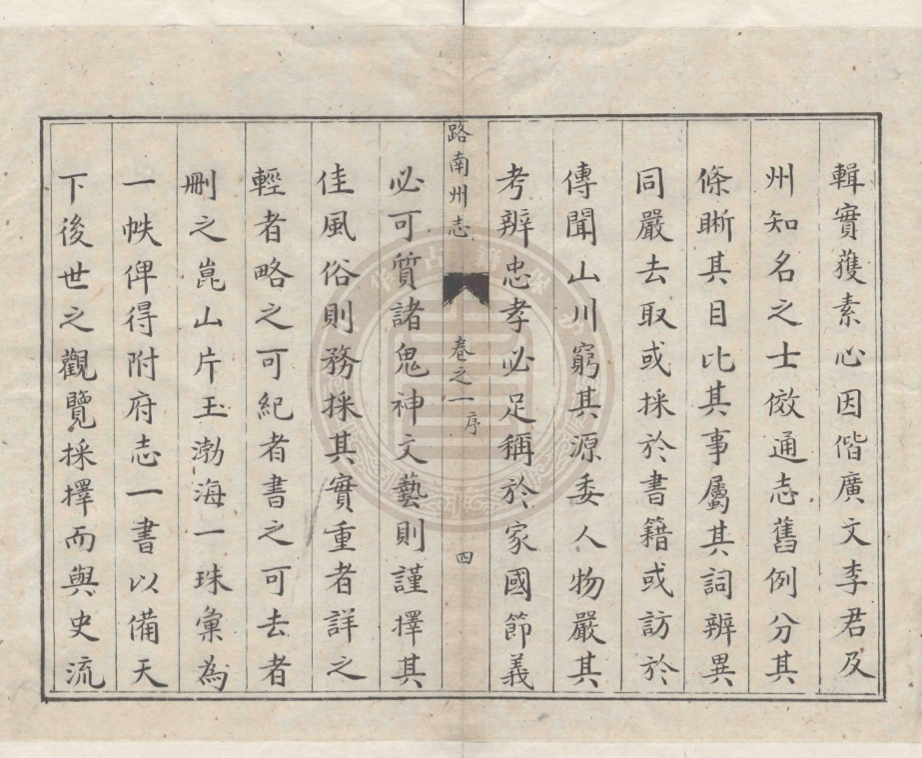 輯實獲素心因偕廣文李君及
州知名之士倣通志舊例分其
條晣其目比其事屬其詞辨異
同嚴去取或採於書籍或訪於
傳聞山川窮其源委人物嚴其
考辨忠孝必足稱於家國節義
路南州志
卷之一序
四
必可質諸鬼神文藝則謹擇其
佳風俗則務採其實重者詳之
輕者略之可紀者書之可去者
刪之崑山片玉渤海一珠彙為
一帙俾得附府志一書以備天
下後世之觀覽採擇而與史流